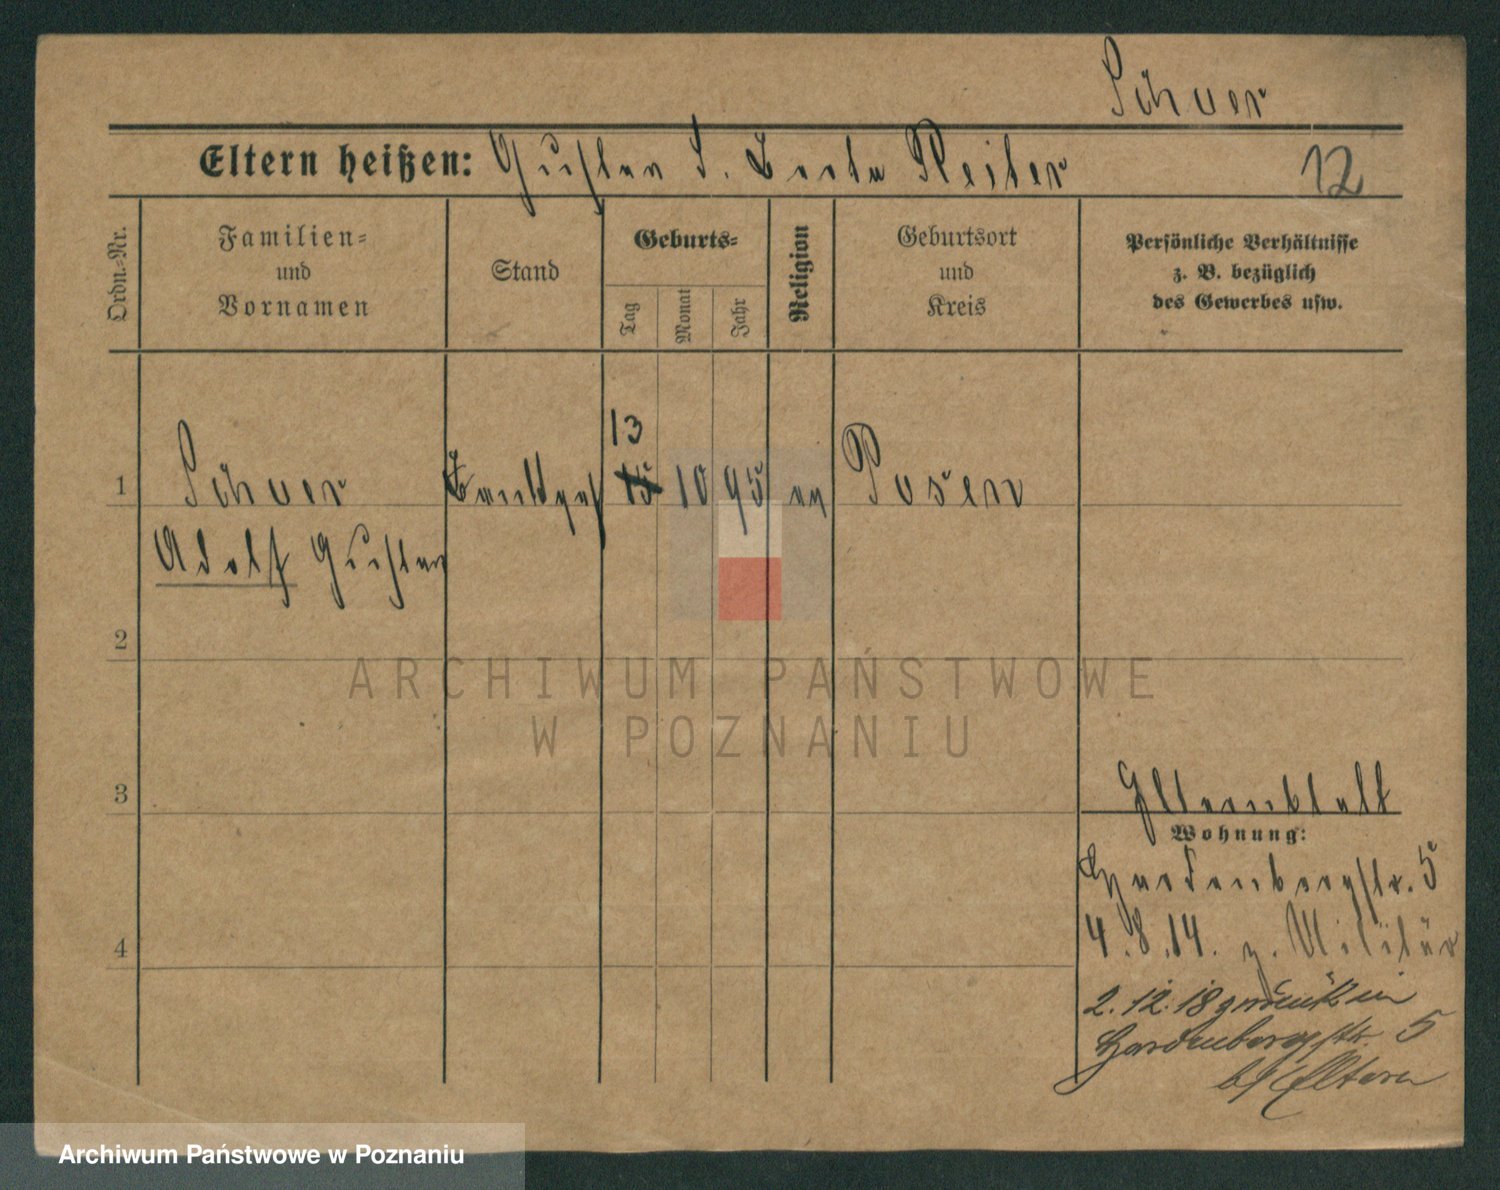 Schuer
Eltern heißen: Gustav S. Berta Reiter 12
Ordn.-Nr.
Familien-
und
Vornamen
Stand
Geburts-
Tag
Monat
Jahr
Religion
Geburtsort
und
Kreis
Persönliche Verhältnisse
z. B. bezüglich
des Gewerbes usw.
13
1 Schuer 15 10 95 ev Posen
Adolf Gustav
2
ARCHIWUM PAŃSTWOWE
W POZNANIU
3
Elternblatt
Wohnung:
Hardenbergstr. 5
4
4.8.14. z. Militär
2.12.18 zurück in
Hardenbergstr. 5
b/ Eltern
Archiwum Państwowe w Poznaniu